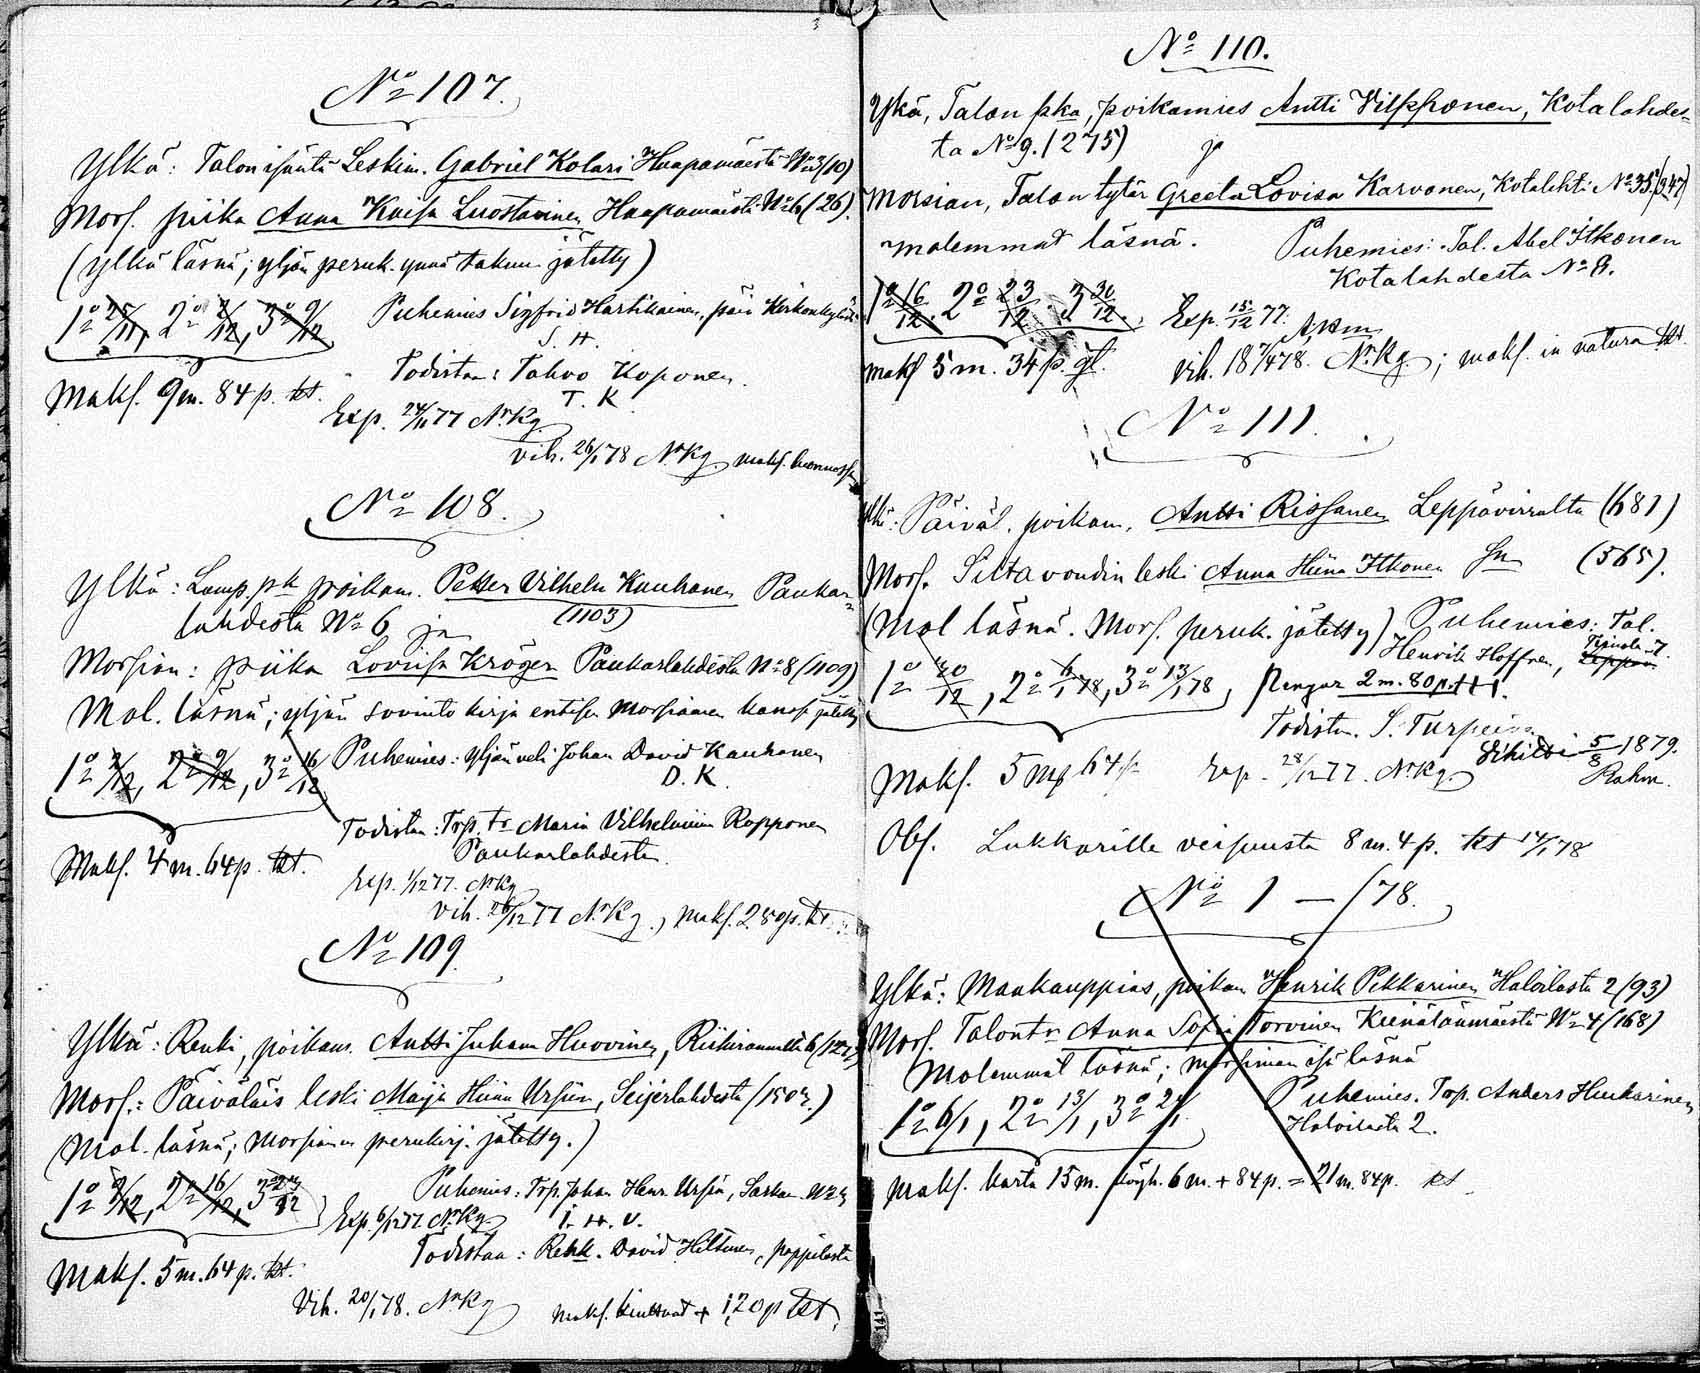 No 107.
Ylkä: Talon isäntä Leskim. Gabriel Kolari Haapamäestä No 3 (10)
Mors. piika Anna Kaisa Luostarinen Haapamäestä No 6 (26).
(ylkä läsnä; yljän peruk. ynnä takuu jätetty)
1o 25/11, 2o 2/12, 3o 9/12
Puhemies Sigfrid Hartikainen, päin Kirkonkylästä
S. H.
Todistaa: Tahvo Koponen.
T. K.
Maks. 9 m. 84 p. kt.
Exp. 24/11 77 NrKg.
vih. 26/1 78 NrKg maks. luonnossa
No 108.
Ylkä: Lamp. pk poikam. Petter Vilhelm Kauhanen Paukar-
lahdesta No 6 ja (1103)
Morsian: piika Loviisa Kröger Paukarlahdesta No 8 (1109)
Mol. läsnä; yljän sovinto kirja entisen morsiamen kanss. jätetty
1o 2/12, 2o 9/12, 3o 16/12
Puhemies: yljän veli Johan David Kauhanen
D. K.
Todistaa: Trp. tr Maria Vilhelmiina Ropponen
Paukarlahdesta.
Maks. 4 m. 64 p. kt.
Exp. 1/12 77. NrKg
vih. 26/12 77 NrKg, maks. 2 80 p. kt.
No 109.
Ylkä: Renki, poikam. Antti Juhana Huovinen, Riikinnummelta 6
Mors.: Päiväläis leski Maija Hiina Ursin, Seijerlahdesta (1507.)
(Mol. läsnä; morsiamen perukirj. jätetty.)
1o 9/12, 2o 16/12, 3o 23/12
Puhemies: Trp. Johan Henr. Ursin, Sarka
Exp. 6/12 77. NrKg
J. H. U.
Todistaa: Renk. David Hiltunen, pappilasta
Maks. 5 m. 64 p. kt.
Vih. 20/1 78. NrKg
maks. kinttaat + 1,20 p kt.
No 110.
Ylkä, Talon pka, poikamies Antti Vilpponen, Kotalahdes-
ta No 9. (275) ja
Morsian, Talon tytär Greeta Lovisa Karvonen, Kotalahti No 35 (347)
molemmat läsnä.
Puhemies: Tal. Abel Itkonen
Kotalahdesta No 8.
1o 16/12. 2o 23/12. 3 30/12.
Exp. 15/12 77.
maks 5 m. 34 p. gt.
vih. 18 7/4 78. NrKg.; maks. in natura kt.
No 111.
Ylkä: Päiväl. poikam. Antti Rissanen Leppävirralta (681)
Mors. Siltavoudin leski Anna Hiina Itkonen Sn (565).
(Mol läsnä. Mors. peruk. jätetty) Puhemies: Tal.
Henrik Hoffren,
1o 30/12, 2o 6/1 78, 3o 13/1 78, Rengas 2 m. 80 p. kt.
Todistaa. S. Turpeinen
Maks. 5 m 64 p.
Exp. 28/12 77. NrKg
Vihitti 5/8 1879.
Rahm.
Obs. Lukkarille veisuusta 8 m. 4 p. kt 14/1 78
No 1 — /78.
Ylkä: Maakauppias, poikam Henrik Pekkarinen Haloilasta 2 (93)
Mors. Talontr Anna Sofia Torvinen Keinälänmäestä No 4 (168)
Molemmat läsnä; morsiamen isä läsnä
1o 6/1, 2o 13/1, 3o 20/1.
Puhemies. Trp. Anders Huukarinen
Haloilasta 2.
Maks. karta 15 m. 6 m. + 84 p. = 21 m. 84 p. kt
141